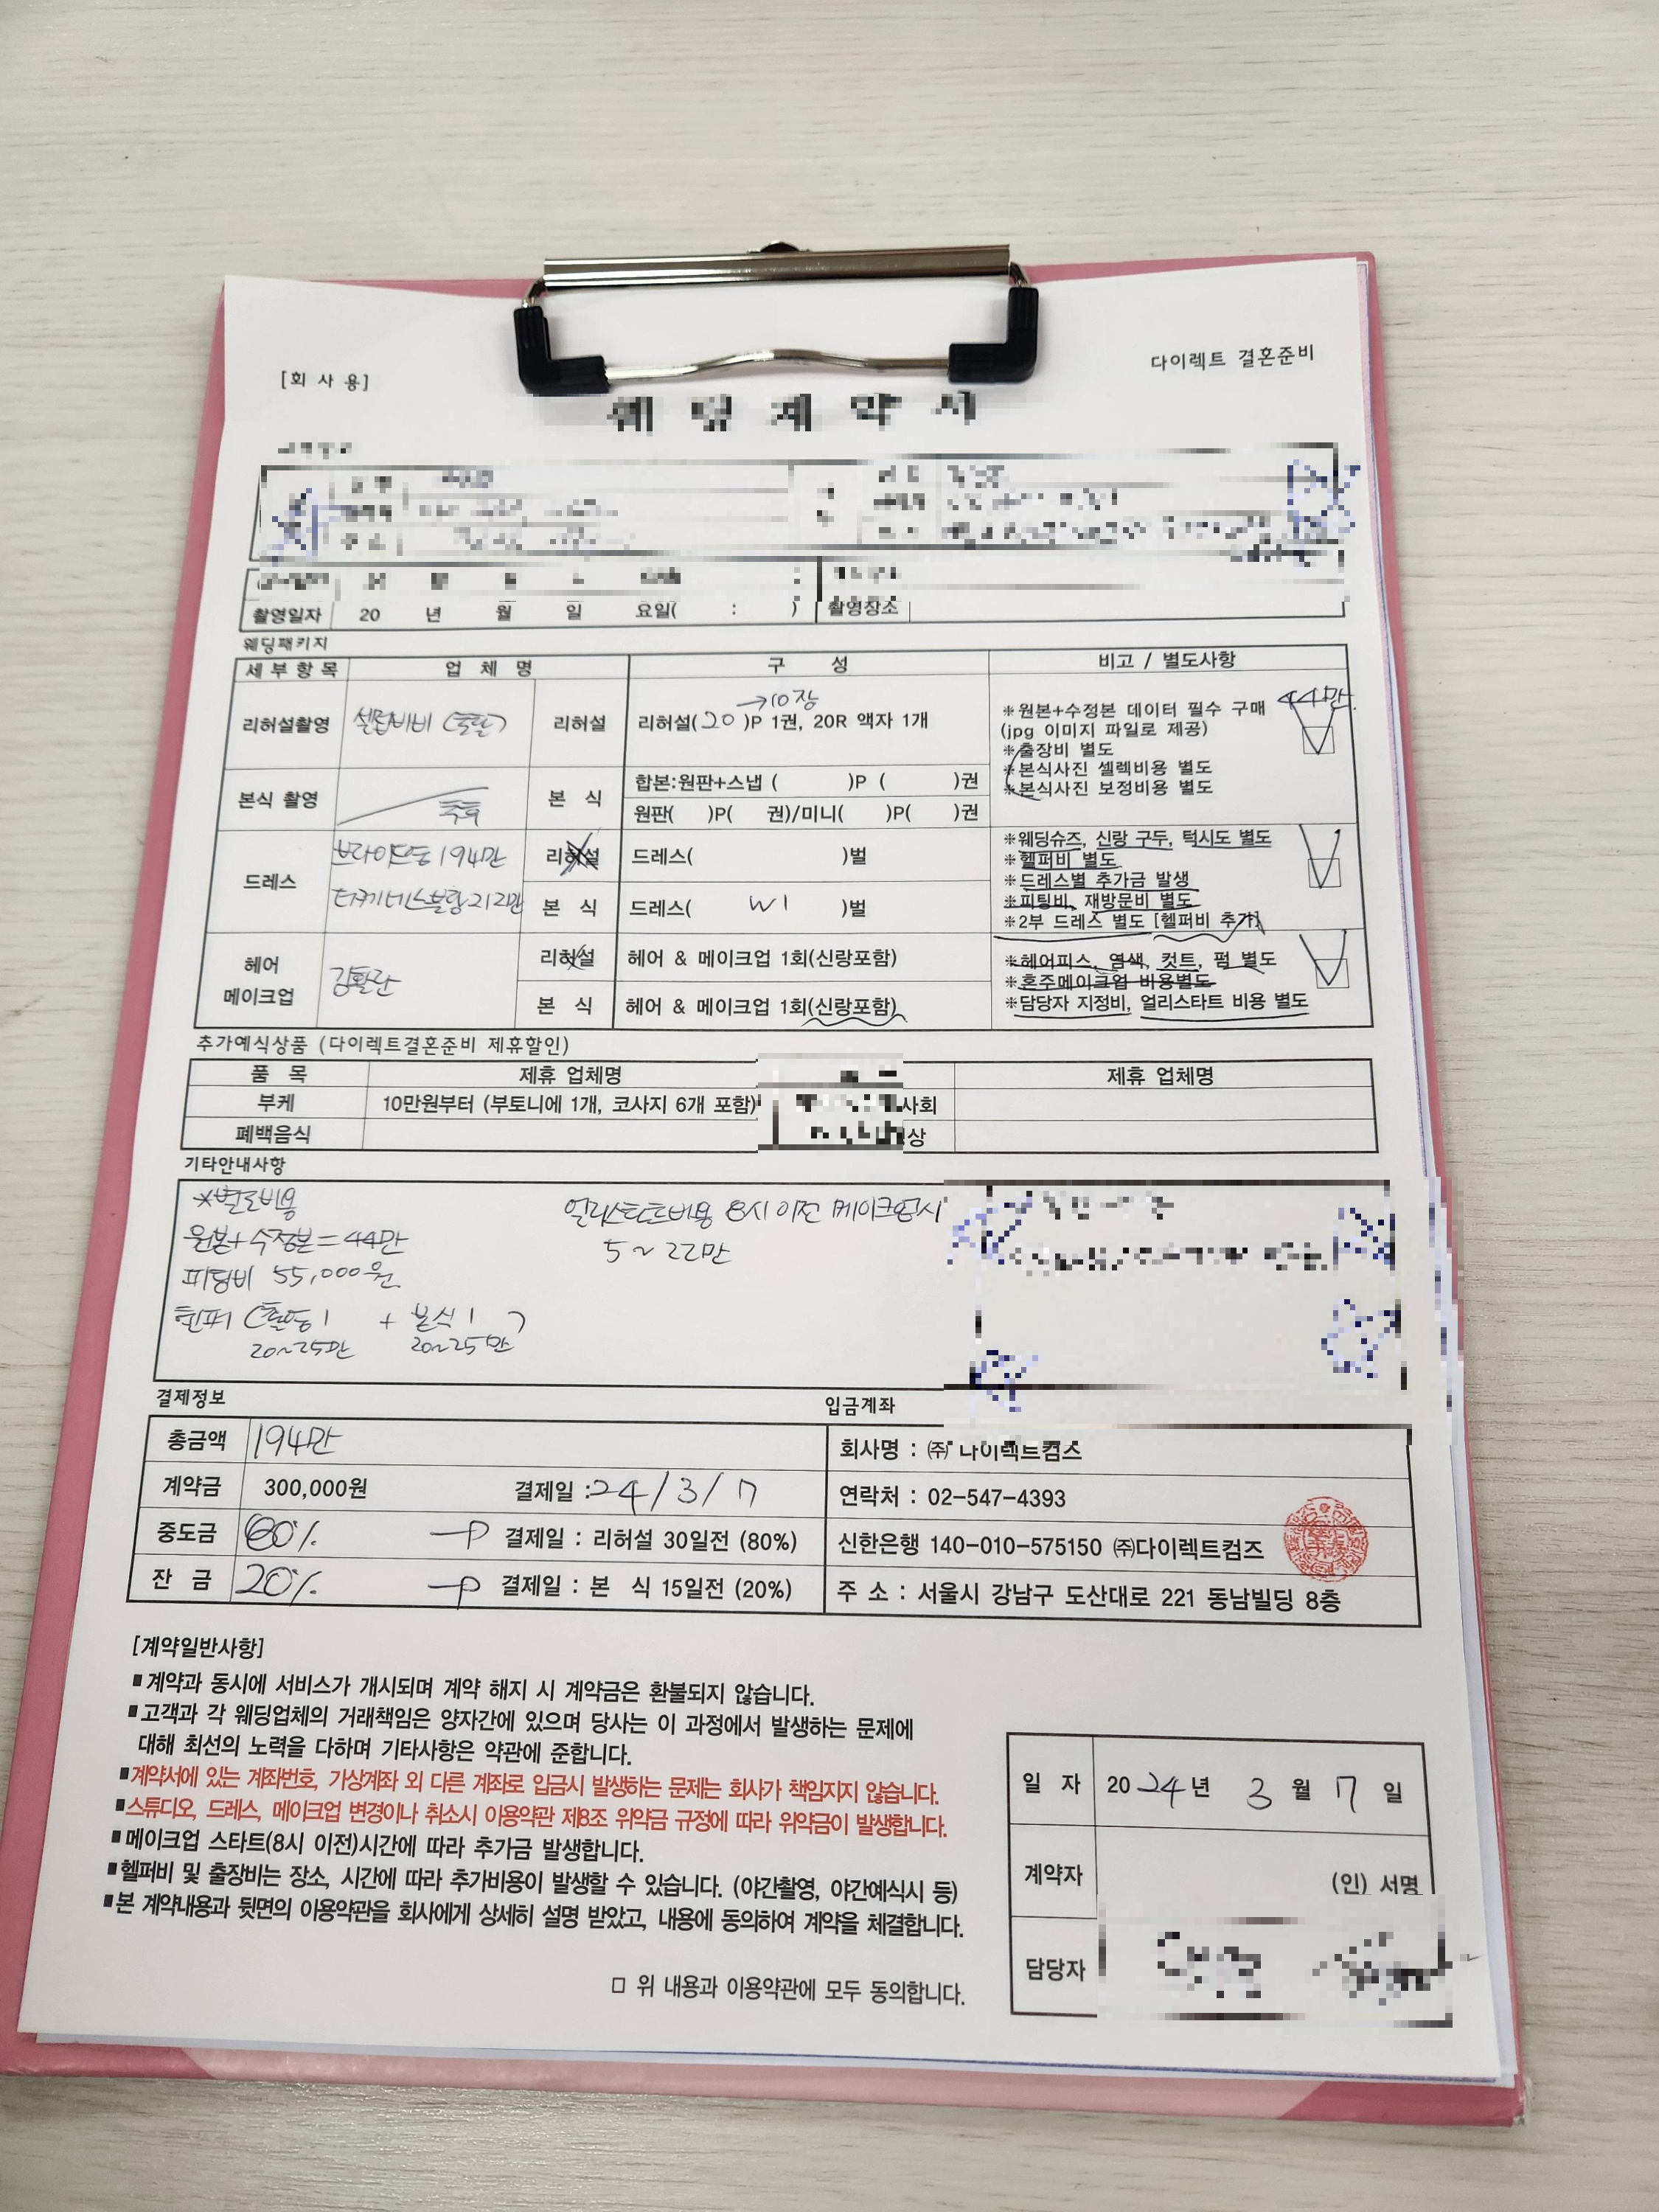 [회 사 용]
다이렉트 결혼준비
웨 딩 계 약 서
촬영일자 20 년 월 일 요일( : ) 촬영장소
웨딩패키지
세부항목 업 체 명 구 성 비고 / 별도사항
리허설촬영 셀럽비비 (토탈) 리허설 리허설( 20 )P 1권, 20R 액자 1개
→10장
※원본+수정본 데이터 필수 구매 44만
(jpg 이미지 파일로 제공)
※출장비 별도
※본식사진 셀렉비용 별도
※본식사진 보정비용 별도
본식 촬영 추후 본 식 합본:원판+스냅 ( )P ( )권
원판( )P( 권)/미니( )P( )권
드레스 브라이드동 194만 리허설 드레스( )벌
212만 본 식 드레스( W1 )벌
※웨딩슈즈, 신랑 구두, 턱시도 별도
※헬퍼비 별도
※드레스별 추가금 발생
※피팅비, 재방문비 별도
※2부 드레스 별도 [헬퍼비 추가]
헤어 메이크업 김활란 리허설 헤어 & 메이크업 1회(신랑포함)
본 식 헤어 & 메이크업 1회(신랑포함)
※헤어피스, 염색, 컷트, 펌 별도
※혼주메이크업 비용별도
※담당자 지정비, 얼리스타트 비용 별도
추가예식상품 (다이렉트결혼준비 제휴할인)
품 목 제휴 업체명 제휴 업체명
부케 10만원부터 (부토니에 1개, 코사지 6개 포함) 사회
폐백음식 상
기타안내사항
*별도비용
원본+수정본=44만
피팅비 55,000원
헬퍼 (촬영1 + 본식1)
20~25만 20~25만
얼리스타트비용 8시 이전 메이크업시
5~22만
결제정보
입금계좌
총금액 194만
계약금 300,000원 결제일 : 24/3/7
중도금 60% → 결제일 : 리허설 30일전 (80%)
잔 금 20% → 결제일 : 본 식 15일전 (20%)
회사명 : ㈜ 다이렉트컴즈
연락처 : 02-547-4393
신한은행 140-010-575150 ㈜다이렉트컴즈
주 소 : 서울시 강남구 도산대로 221 동남빌딩 8층
[계약일반사항]
■계약과 동시에 서비스가 개시되며 계약 해지 시 계약금은 환불되지 않습니다.
■고객과 각 웨딩업체의 거래책임은 양자간에 있으며 당사는 이 과정에서 발생하는 문제에
대해 최선의 노력을 다하며 기타사항은 약관에 준합니다.
■계약서에 있는 계좌번호, 가상계좌 외 다른 계좌로 입금시 발생하는 문제는 회사가 책임지지 않습니다.
■스튜디오, 드레스, 메이크업 변경이나 취소시 이용약관 제8조 위약금 규정에 따라 위약금이 발생합니다.
■메이크업 스타트(8시 이전)시간에 따라 추가금 발생합니다.
■헬퍼비 및 출장비는 장소, 시간에 따라 추가비용이 발생할 수 있습니다. (야간촬영, 야간예식시 등)
■본 계약내용과 뒷면의 이용약관을 회사에게 상세히 설명 받았고, 내용에 동의하여 계약을 체결합니다.
□ 위 내용과 이용약관에 모두 동의합니다.
일 자 2024년 3월 7일
계약자 (인) 서명
담당자